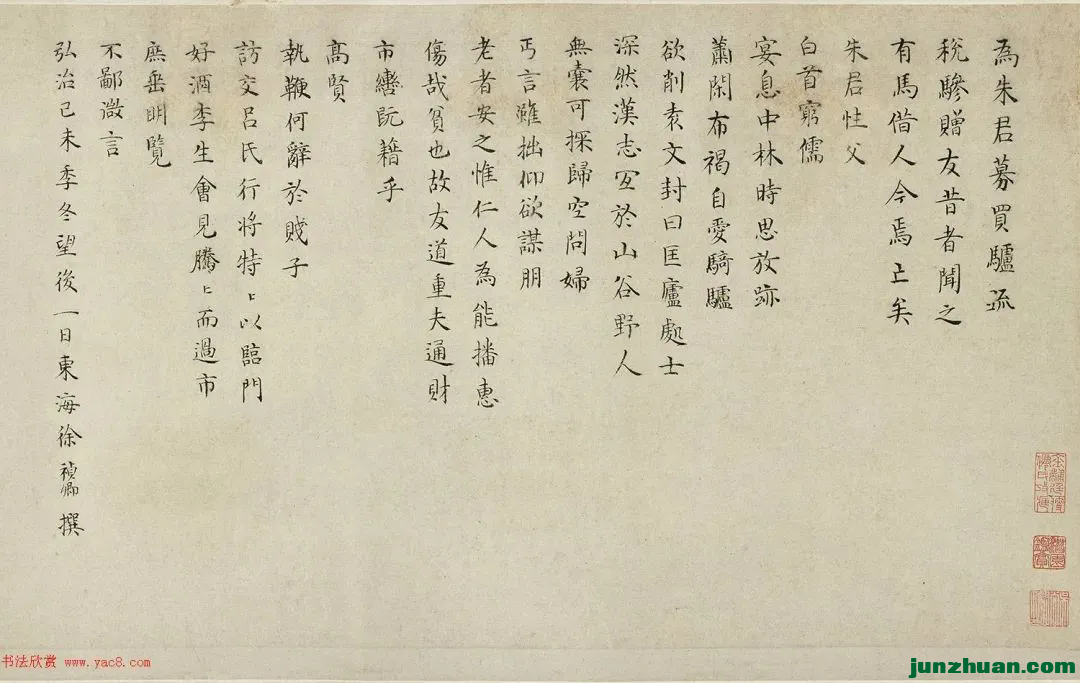 為朱君募買驢疏
稅驂贈友昔者聞之
有馬借人今焉亡矣
朱君性父
白首窮儒
宴息中林時思放跡
蕭閑布褐自愛騎驢
欲削袁文封曰匡廬處士
深然漢志宜於山谷野人
無囊可探歸空問婦
丐言雖拙仰欲謀朋
老者安之惟仁人為能播惠
傷哉貧也故友道重夫通財
市轡阮籍乎
高賢
執鞭何辭於賤子
訪交呂氏行將特〻以臨門
好酒李生會見騰〻而過市
庶垂明覽
不鄙微言
弘治己未季冬望後一日東海徐禎卿撰
书法欣赏 www.yac8.com
junzhuan.com